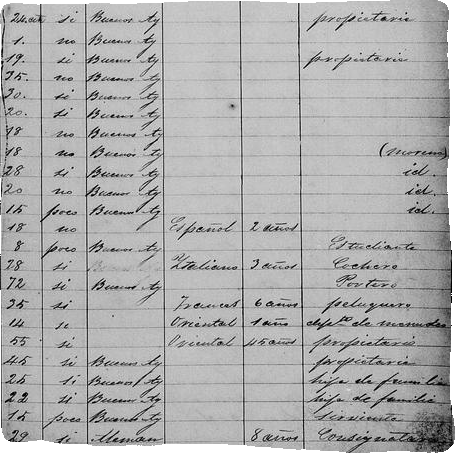 24 si Buenos Ay propietario
1. no Buenos Ay
19. si Buenos Ay propietario
35. no Buenos Ay
30. si Buenos Ay
20. si Buenos Ay
18 no Buenos Ay
18 no Buenos Ay (moreno)
28 si Buenos Ay id.
20 no Buenos Ay id.
15 poco Buenos Ay id.
18 no Español 2 años
8 poco Buenos Ay Estudiante
28 si Italiano 3 años Cochero
72 si Buenos Ay Portero
35 si Frances 6 años peluquero
14 si Oriental 1 año de
55 si Oriental 45 años propietario
45 si Buenos Ay propietario
25 si Buenos Ay hija de familia
22 si Buenos Ay hija de familia
15 poco Buenos Ay sirviente
29 si Aleman 8 años Consignatario